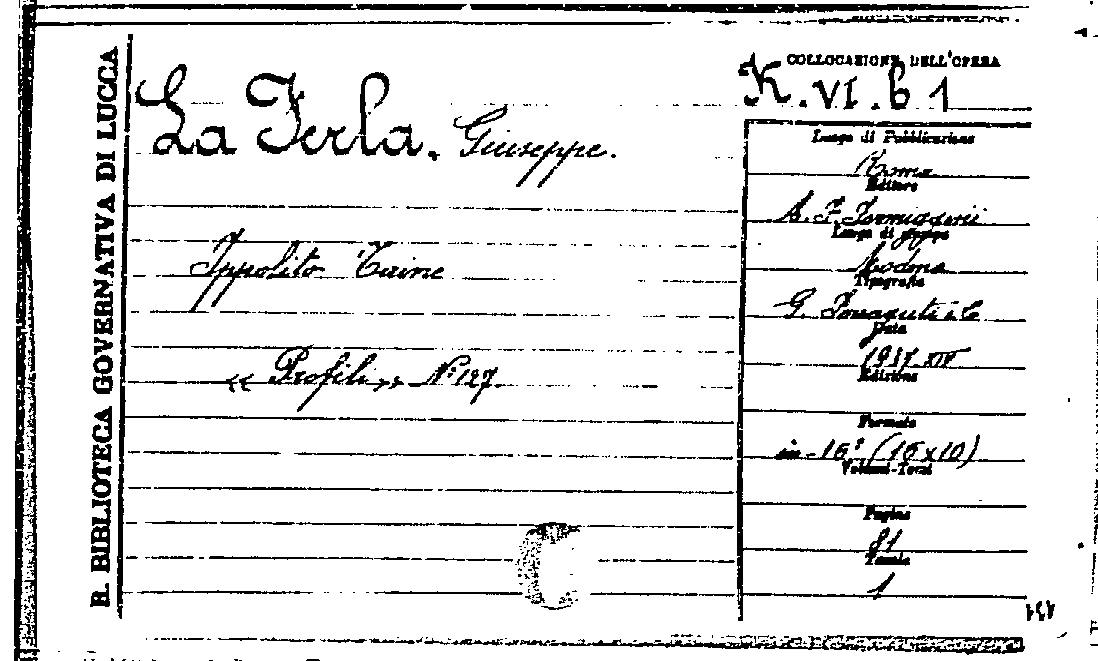 R. BIBLIOTECA GOVERNATIVA DI LUCCA
La Ferla. Giuseppe.
Ippolito Taine
« Profili » N° 127
COLLOCAZIONE DELL'OPERA
K. VI. b 1
Luogo di Pubblicazione
Roma
Editore
A. F. Formiggini
Luogo di stampa
Modena
Tipografia
G. Ferraguti & C
Data
1937 XIV
Edizione
Formato
in-16° (16x10)
Volumi-Tomi
Pagine
81
Tavole
1